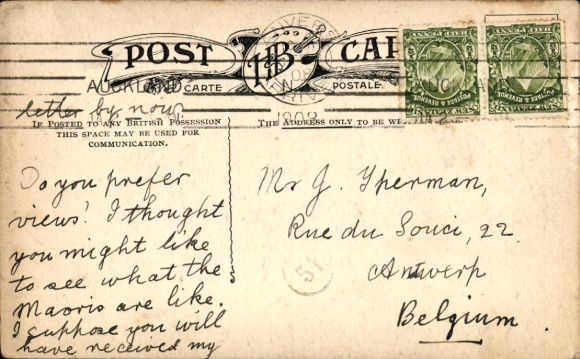 POST CARD
CARTE POSTALE
HB
AUCKLAND
letter by now
IF POSTED TO ANY BRITISH POSSESSION
THIS SPACE MAY BE USED FOR
COMMUNICATION.
THE ADDRESS ONLY TO BE
Do you prefer
views? I thought
you might like
to see what the
Maoris are like.
I suppose you will
have received my
Mr J. Yperman,
Rue du Souci, 22
Antwerp
Belgium.
51
POSTAGE & REVENUE
POSTAGE & REVENUE